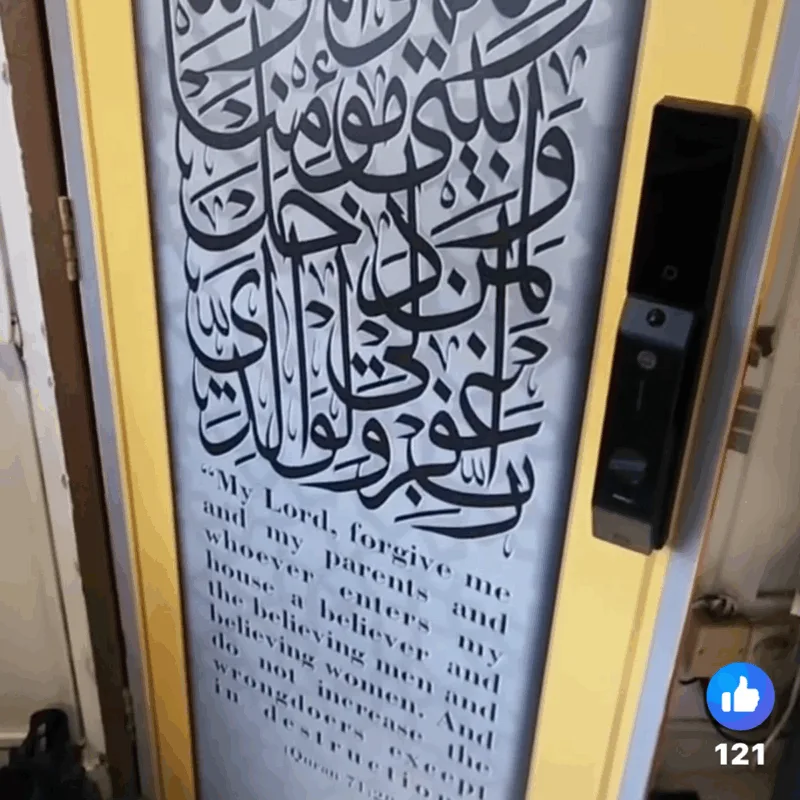 رب اغفر لي ولوالدي
ولمن دخل
بيتي مؤمنا
“My Lord, forgive me
and my parents and
whoever enters my
house a believer and
the believing men and
believing women. And
do not increase the
wrongdoers except
in destruction
(Quran 71:
121